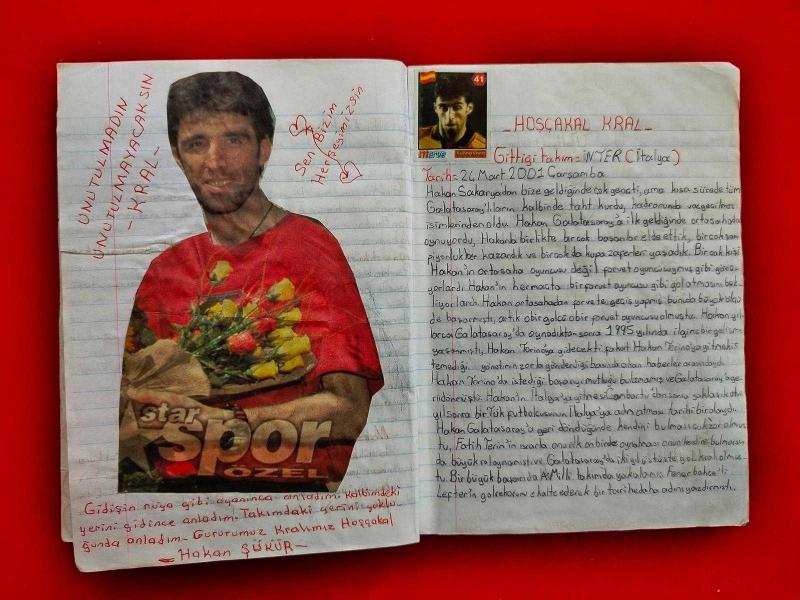 UNUTULMADIN
UNUTULMAYACAKSIN
- KRAL -
Sen Bizim
Herşeyimizsin
star
spor
ÖZEL
Gidişin rüya gibi uyanınca anladım. Kalbimdeki
yerini gidince anladım. Takımdaki yerini yoklu
ğunda anladım. Gururumuz Kralımız Hoşçakal
- Hakan ŞÜKÜR -
41
merve
- HOŞÇAKAL KRAL -
Gittiği takım = İNTER (İtalya)
Tarih = 24 Mart 2001 Çarşamba
Hakan Sakaryadan bize geldiğinde çok gençti, ama kısa sürede tüm
Galatasaray'lıların kalbinde taht kurdu, kadronunda vazgeçilmez
isimlerinden oldu. Hakan Galatasaray'a ilk geldiğinde ortasahada
oynuyordu, Hakanla birlikte birçok başarılar elde ettik, birçok şam
piyonluklar kazandık ve birçokda kupa zaferleri yaşadık. Birçok kişi
Hakan'ın ortasaha oyuncusu değil forvet oyuncusuymuş gibi görü
yorlardı. Hakan'ın her maçta bir forvet oyuncusu gibi gol atmasını bek
liyorlardı. Hakan ortasahadan forvete geçiş yapmış bunuda büyük ölçü
de başarmıştı, artık o bir golcü o bir forvet oyuncusu olmuştu. Hakan yıl
larca Galatasaray'da oynadıktan sonra 1995 yılında ilginç bir gelişme
yaşanmıştı, Hakan Torino'ya gidecekti fakat Hakan Torino'ya gitmek is
temediği yönetimin zorla gönderdiği basında çıkan haberler arasındaydı.
Hakan Torino'da istediği başarıyı mutluğu bulamamış ve Galatasaray'a ge
ri dönmüştü. Hakan'ın İtalya'ya gitmesi Can Bartu'dan sonra yaklaşık
yıl sonra bir Türk futbolcusunun İtalya'ya adım atması tarihi bir olaydı.
Hakan Galatasaray'a geri döndüğünde kendini bulması çok zor olmuş
tu, Fatih Terim'in ısrarla onu ilk on birde oynatması onun kendini bulmasın
da büyük rol oynamıştı ve Galatasaray'da iki yıl üst üste gol kralı olmuş
tu. Bir büyük başarıyıda A Milli takımda yakalamış Fenerbahçe'li
Lefter'in gol rekorunu egale ederek bir tarihe daha adını yazdırmıştı.